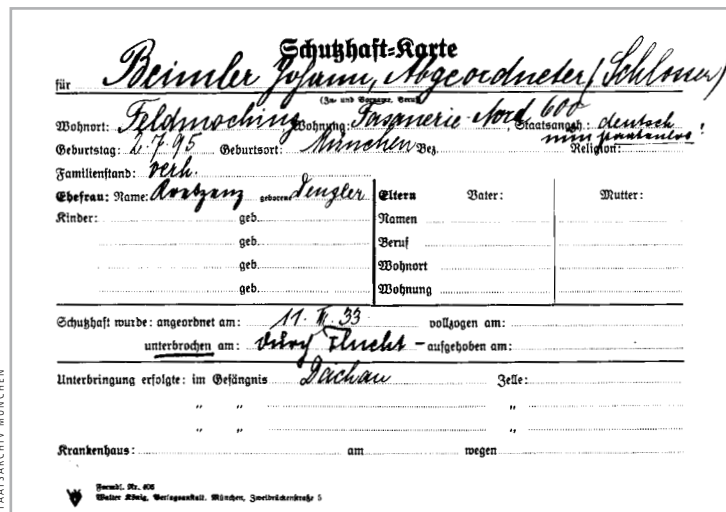 Schutzhaft-Karte
für Beimler Johann, Abgeordneter (Schlosser)
(Zu- und Vorname, Beruf)
Wohnort: Feldmoching Wohnung: Fasanerie Nord 600 Staatsangeh.: deutsch
nun staatenlos!
Geburtstag: 2.7.95 Geburtsort: München Bez. Religion:
Familienstand: verh.
Ehefrau: Name: geborene Dengler Eltern Vater: Mutter:
Kinder: geb. Namen
geb. Beruf
geb. Wohnort
geb. Wohnung
Schutzhaft wurde: angeordnet am: 11. 33 vollzogen am:
unterbrochen am: durch Flucht – aufgehoben am:
Unterbringung erfolgte: im Gefängnis Dachau Zelle:
„ „ „
„ „ „
Krankenhaus: am wegen
Formbl. Nr. 406
Walter König, Verlagsanstalt. München, Zweibrückenstraße 5
STAATSARCHIV MÜNCHEN